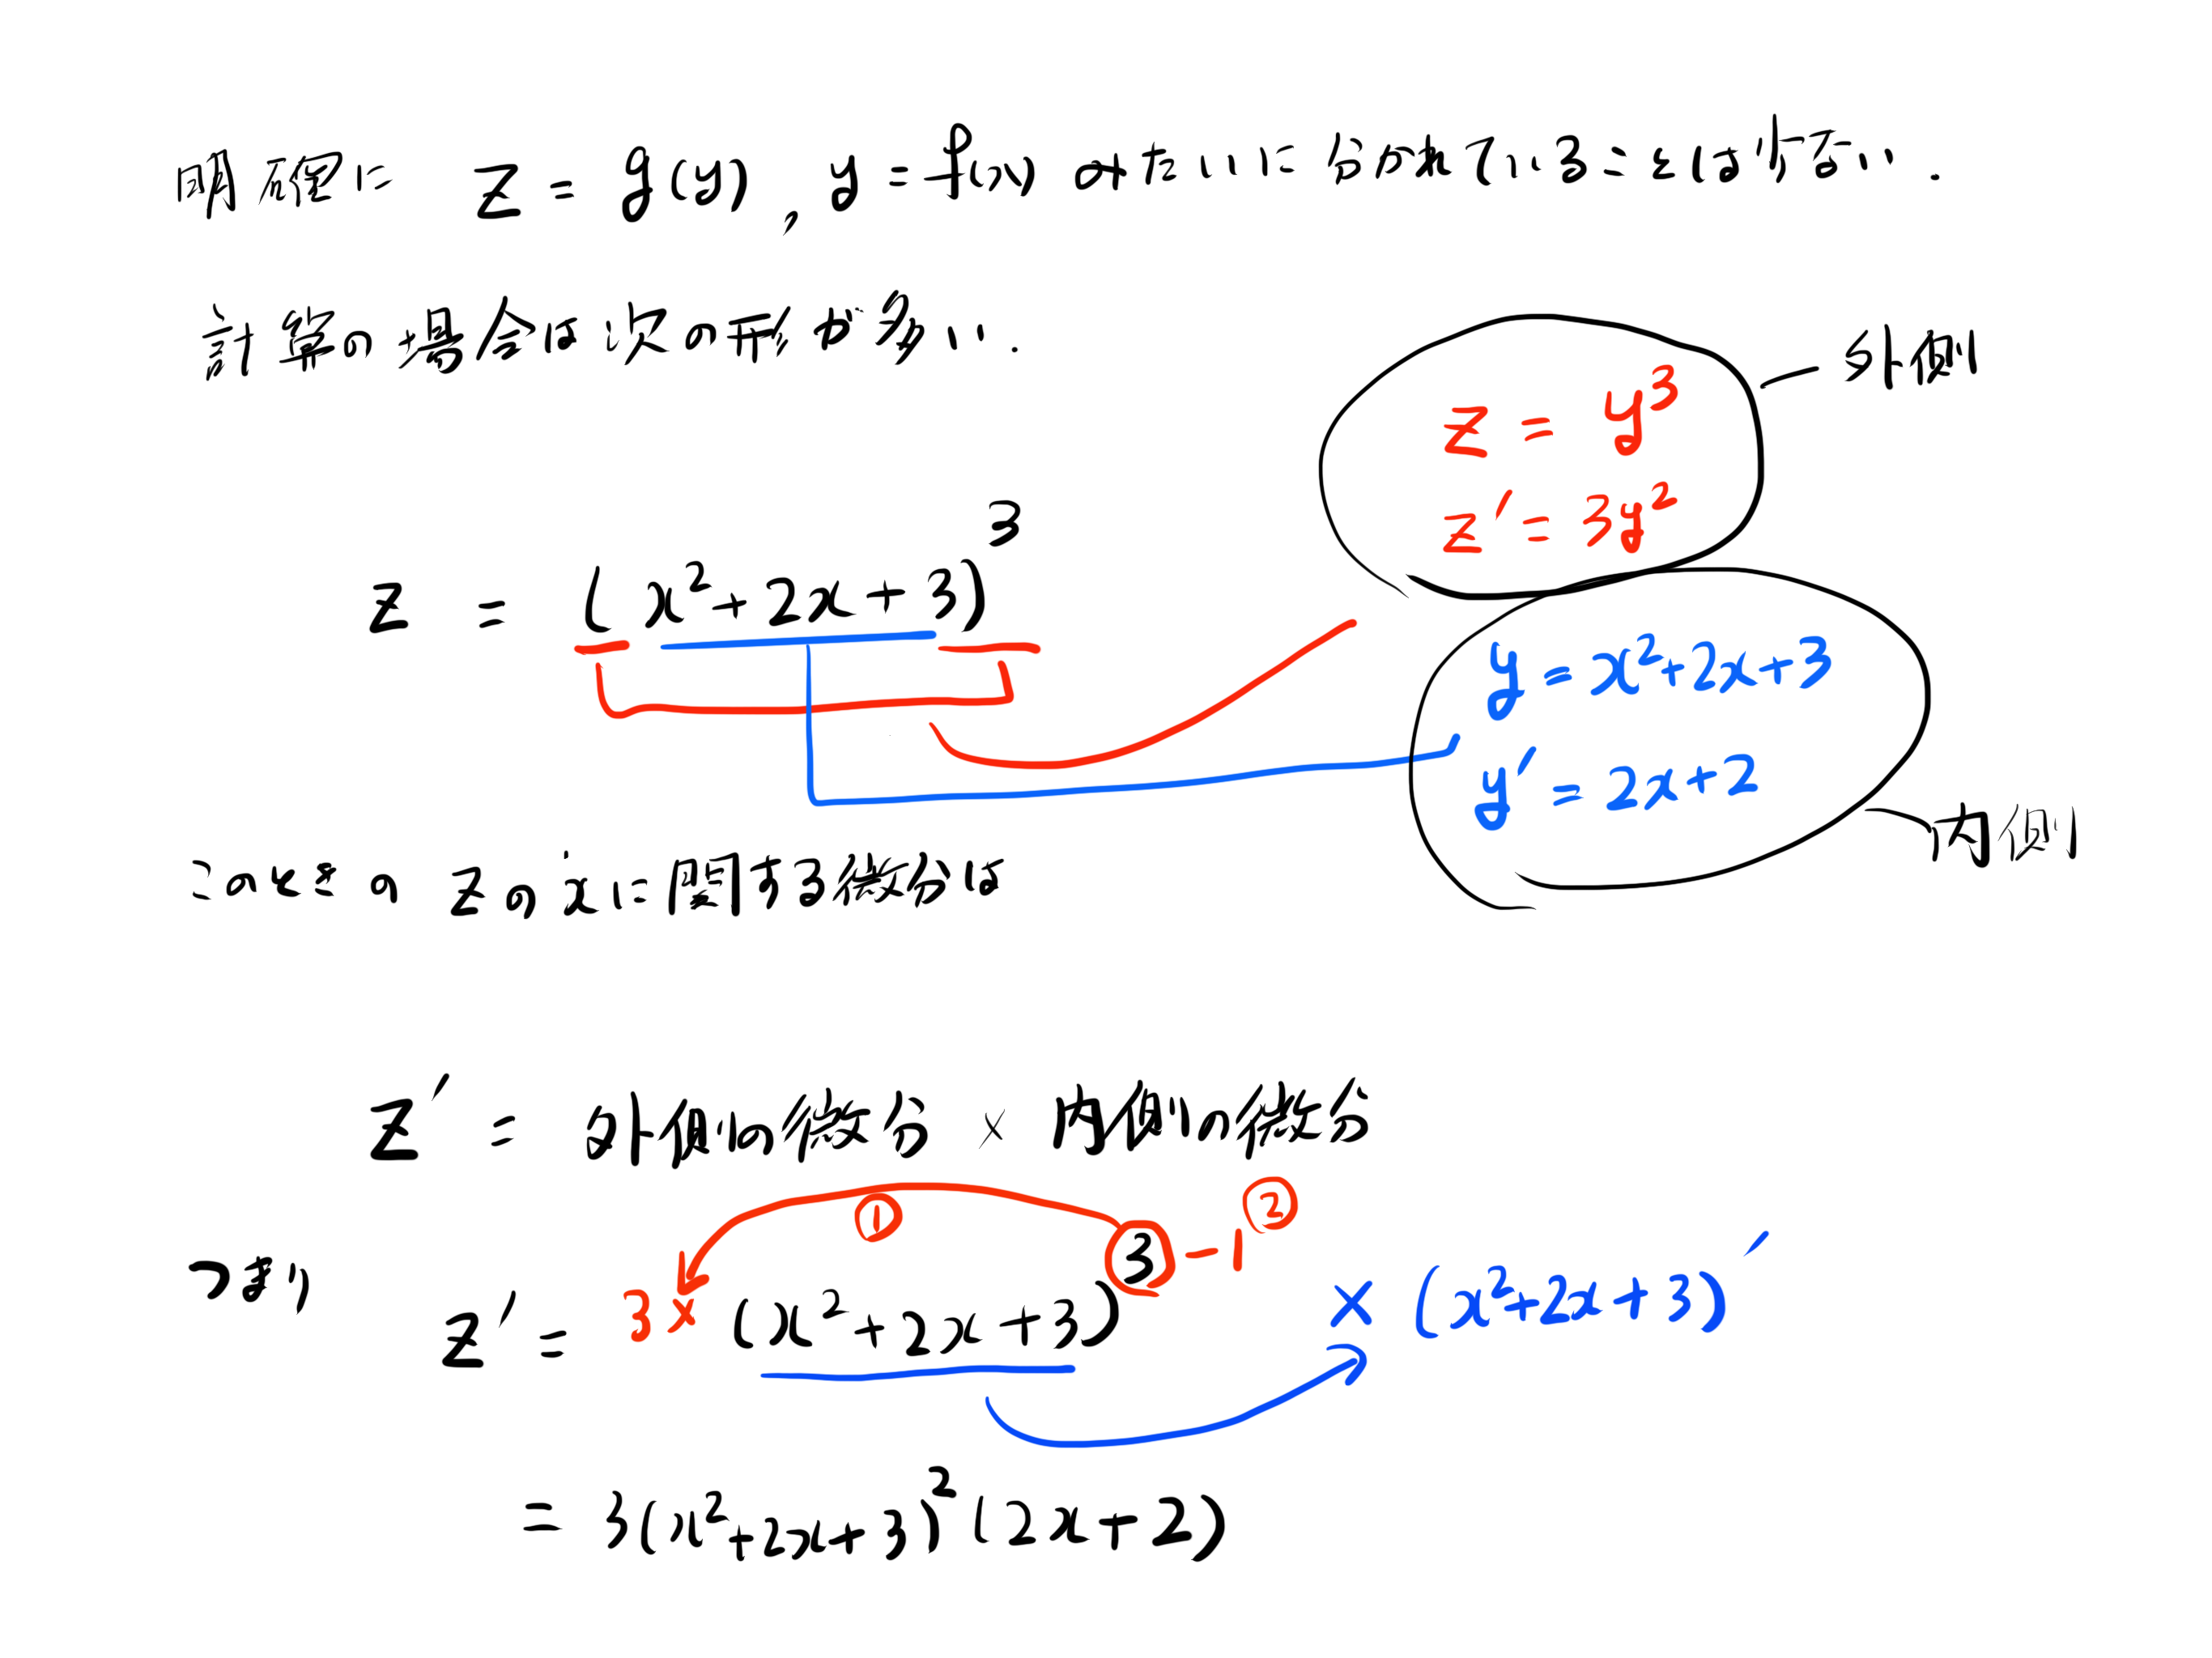 明確に z = g(y), y = f(x) みたいに分かれていることは少ない.
計算の場合は次の形が多い.
外側
z = y³
z′ = 3y²
z = (x²+2x+3)³
y = x²+2x+3
y′ = 2x+2
内側
このときの zのxに関する微分は
z′ = 外側の微分 × 内側の微分
① ②
つまり z′ = 3× (x²+2x+3)³⁻¹ × (x²+2x+3)′
= 3(x²+2x+3)²(2x+2)